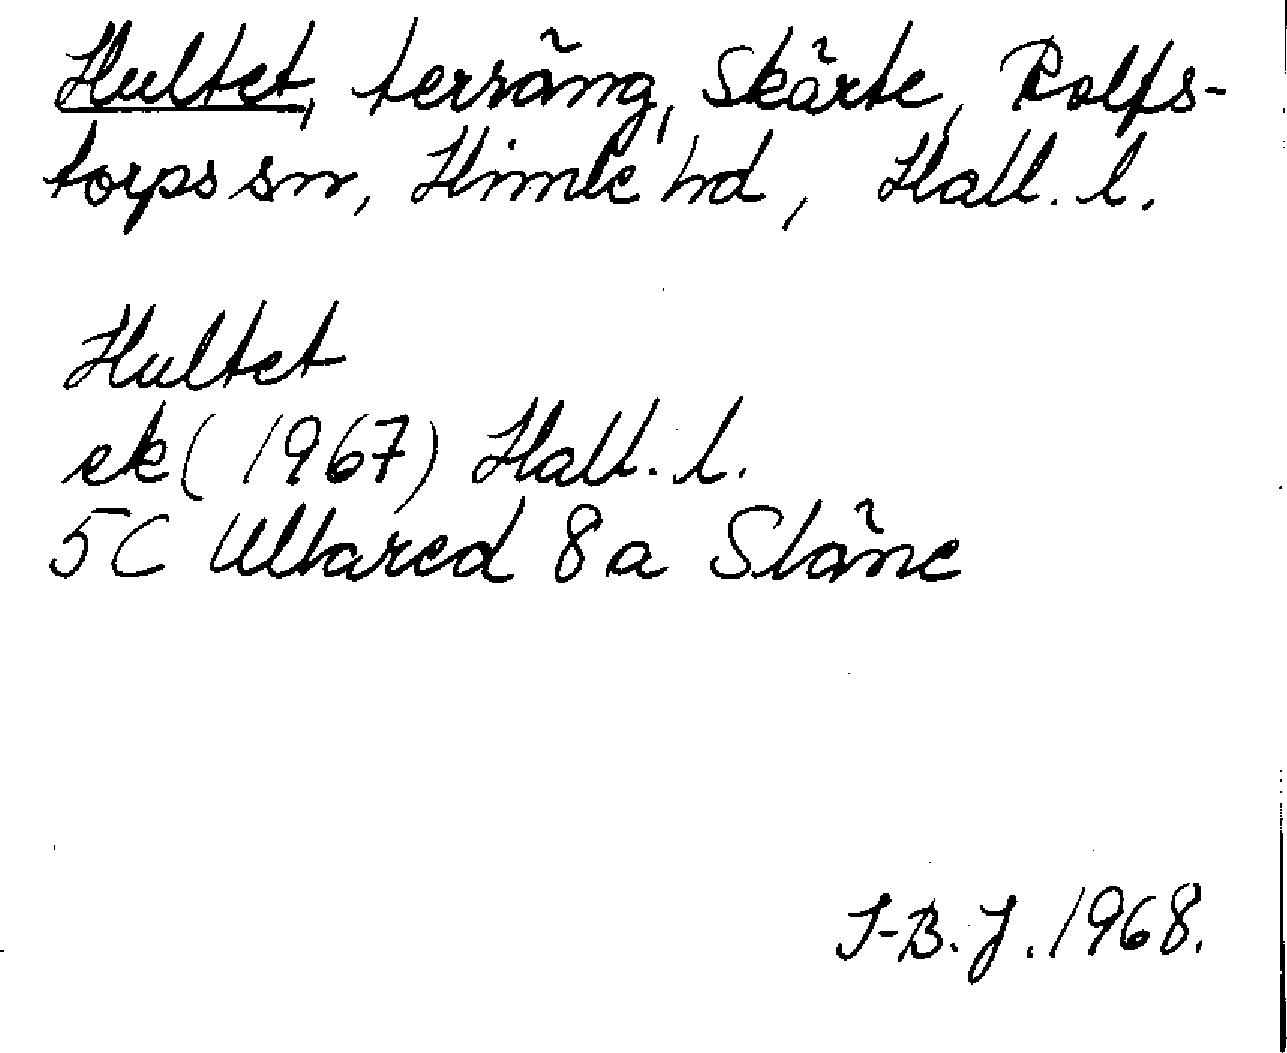 Hultet, terräng, Skärte, Rolfs-
torps sn, Himle hd, Hall. l.
Hultet
ek (1967) Hall. l.
5C Ullared 8a Stäne
I-B. J. 1968.